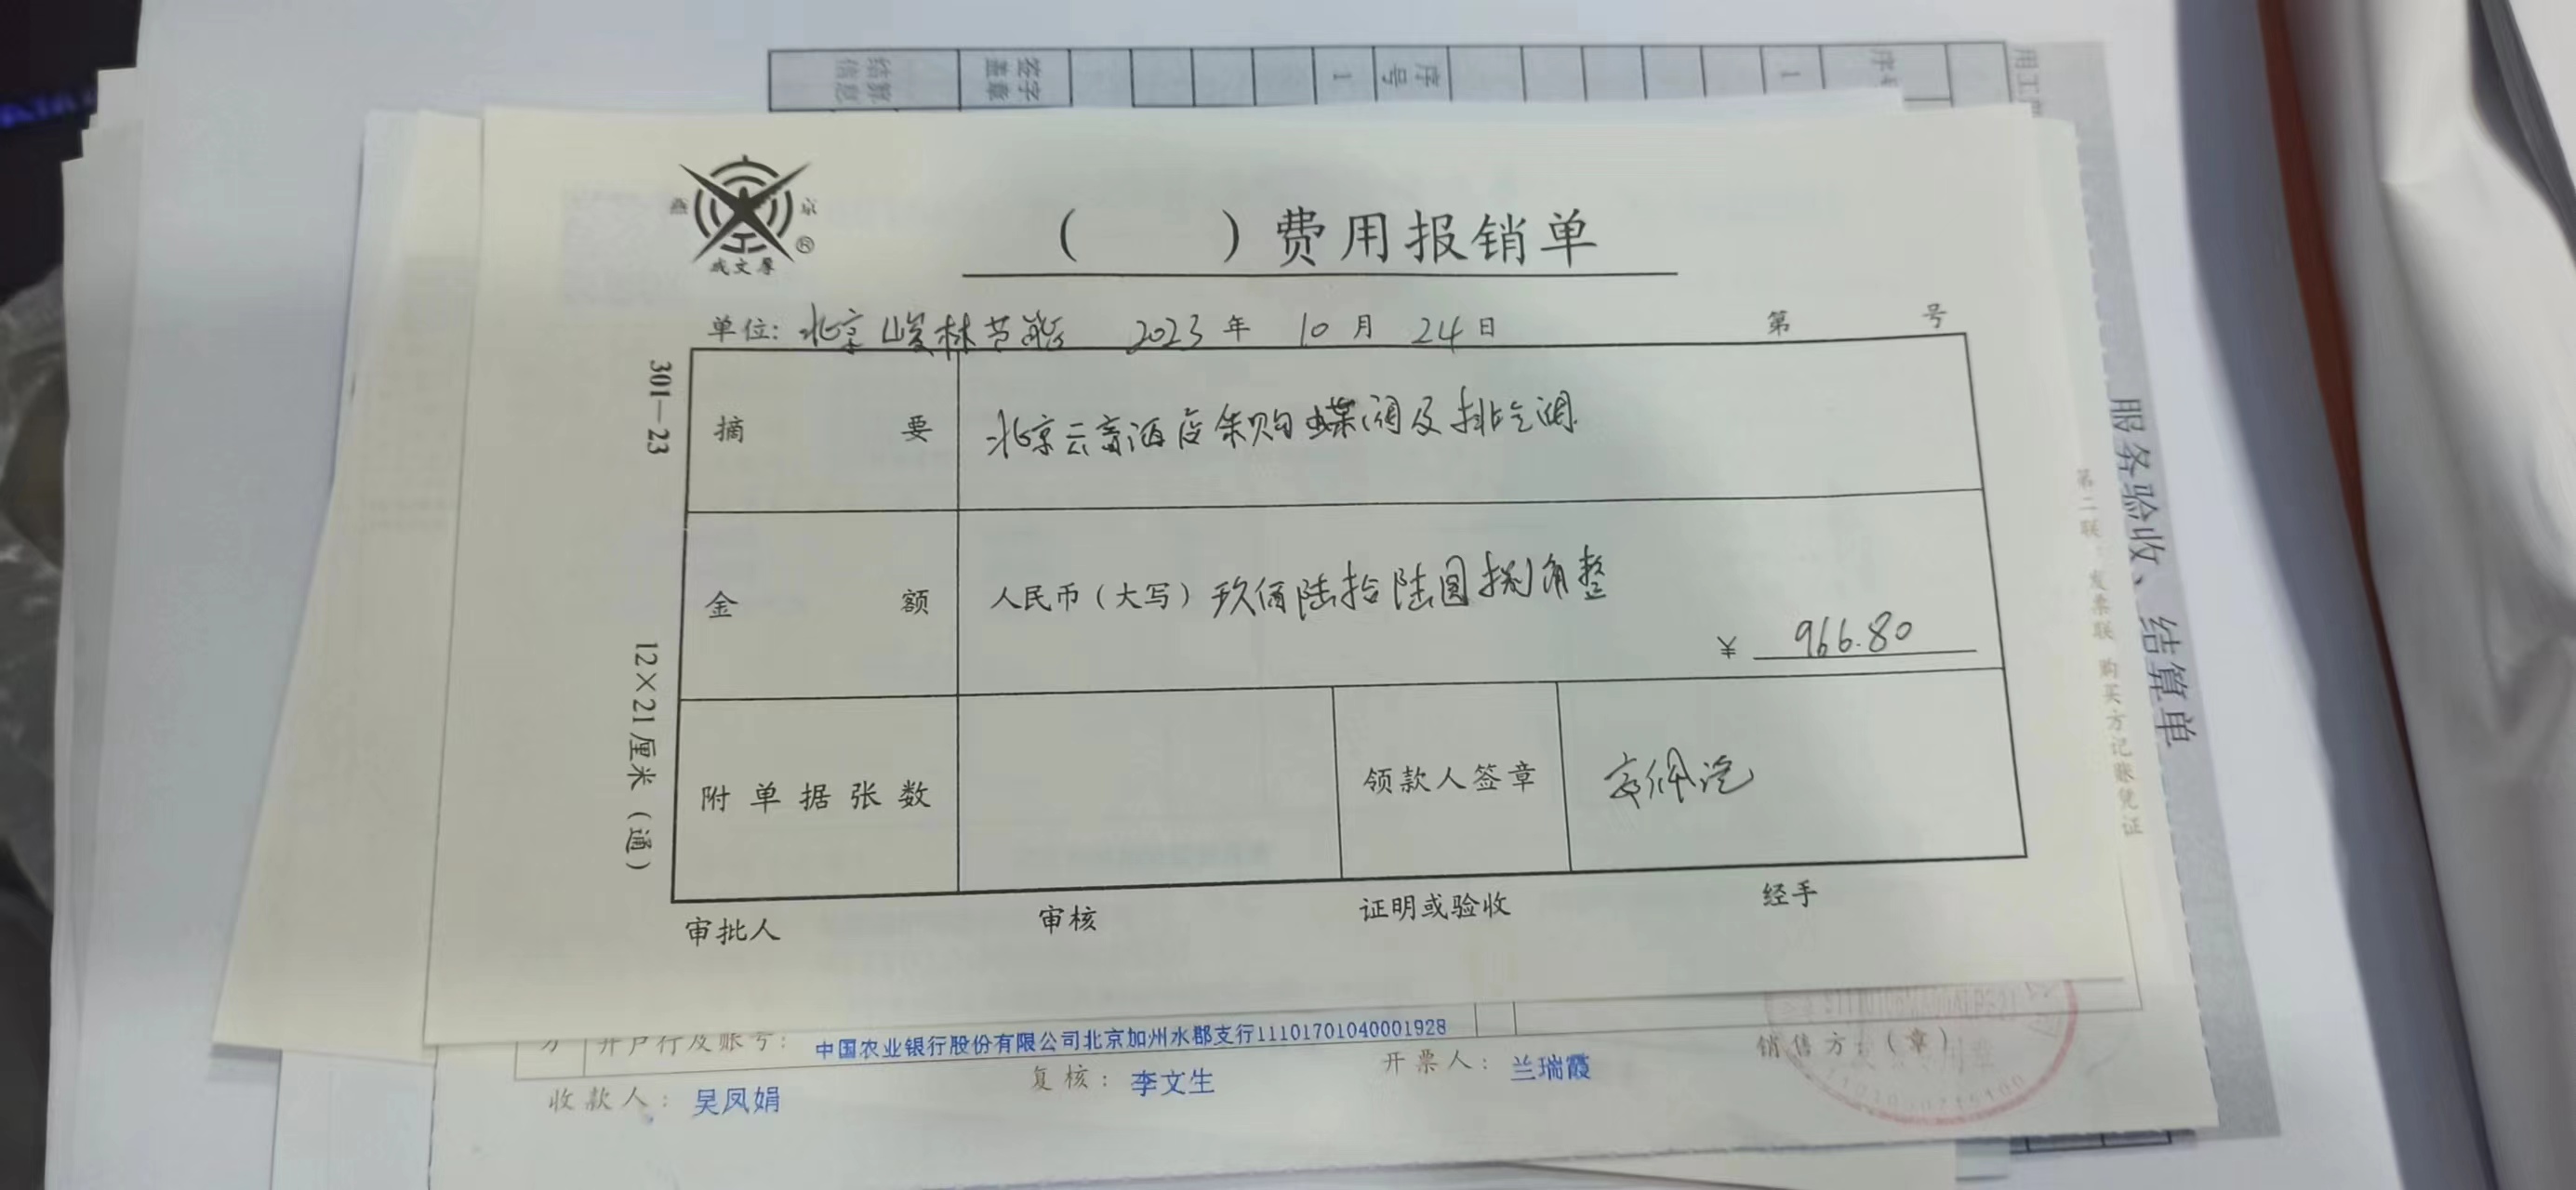 结算信息
签字盖章
1
序号
1
序号
燕京
®
成文厚
( )费用报销单
单位: 北京峻林节能 2023年 10月 24日 第 号
301—23
12×21厘米(通)
摘要 北京云斋酒店采购蝶阀及排气阀
金额 人民币(大写) 玖佰陆拾陆圆捌角整
¥ 966.80
附单据张数 领款人签章
审批人 审核 证明或验收 经手
服务验收、结算单
第二联:发票联 购买方记账凭证
方 开户行及账号: 中国农业银行股份有限公司北京加州水郡支行11101701040001928
收款人: 吴凤娟 复核: 李文生 开票人: 兰瑞霞 销售方:(章)